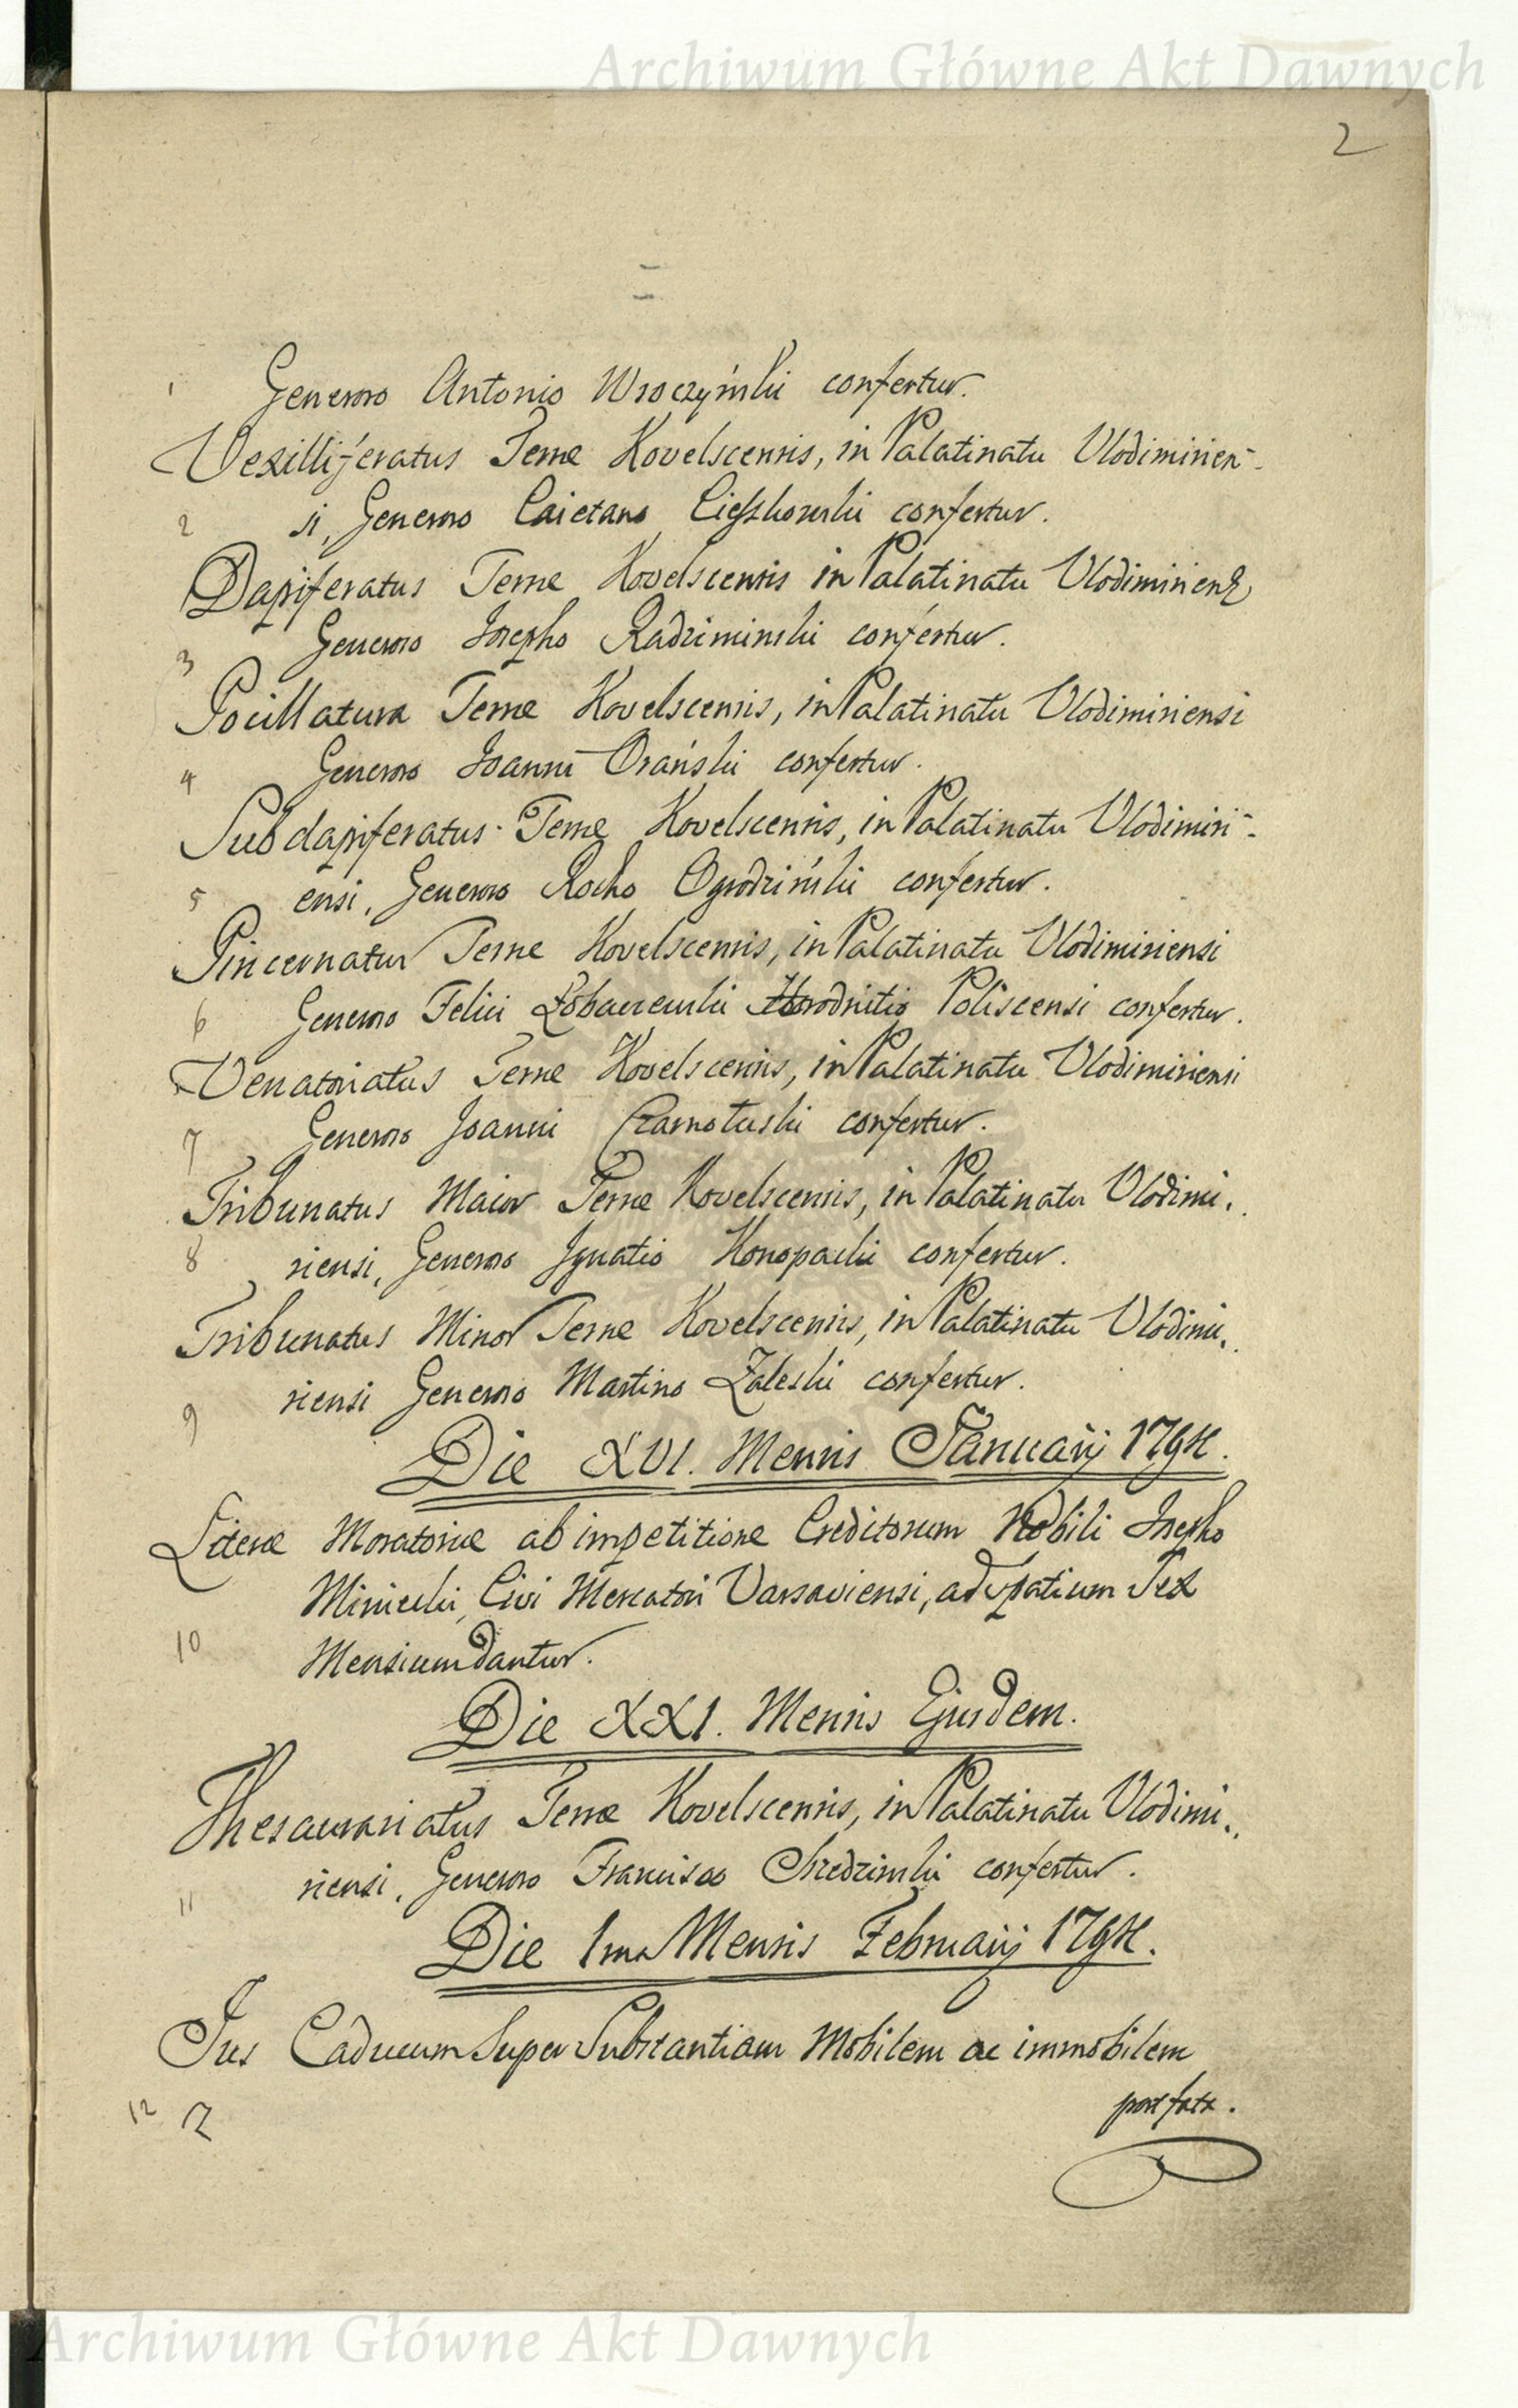 Archiwum Główne Akt Dawnych
2
1 Generoso Antonio Wroczyński confertur.
Vexilliferatus Terræ Kovelscensis, in Palatinatu Vlodimirien-
2 si, Generoso Caietano Cieszkowski confertur.
Dapiferatus Terræ Kovelscensis in Palatinatu Vlodimiriens
3 Generoso Josepho Radziminski confertur.
Pocillatura Terræ Kovelscensis, in Palatinatu Vlodimiriensi
4 Generoso Joanni Orański confertur.
Subdapiferatus Terræ Kovelscensis, in Palatinatu Vlodimiri-
5 ensi, Generoso Rocho Ogrodziński confertur.
Pincernatus Terræ Kovelscensis, in Palatinatu Vlodimiriensi
6 Generoso Felici Łobaczewski Horodnitio Poliscensi confertur.
Venatoriatus Terræ Kovelscensis, in Palatinatu Vlodimiriensi
7 Generoso Joanni Czarnotuski confertur.
Tribunatus Maior Terræ Kovelscensis, in Palatinatu Vlodimi.
8 riensi, Generoso Ignatio Konopacki confertur.
Tribunatus Minor Terræ Kovelscensis, in Palatinatu Vlodimi.
9 riensi Generoso Martino Zaleski confertur.
Die XVI. Mensis Januarij 1794.
Literæ Moratoriæ ab impetitione Creditorum Nobili Josepho
Miniecki, Civi Mercatori Varsaviensi, ad spatium Sex
10 Mensium dantur.
Die XXI. Mensis Ejusdem.
Thesaurariatus Terræ Kovelscensis, in Palatinatu Vlodimi.
11 riensi, Generoso Francisco Chredzinski confertur.
Die 1ma Mensis Februarij 1794.
Jus Caducum Super Substantiam Mobilem ac immobilem
12 2 post fata.
Archiwum Główne Akt Dawnych